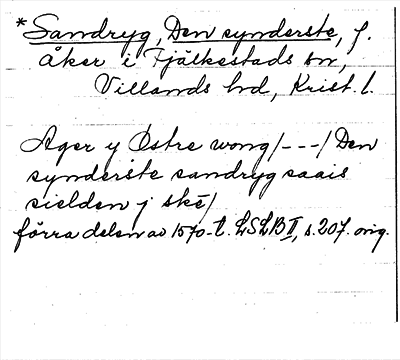 *Sandryg, Den synderste, f.
åker i Fjälkestads sn,
Villands hd, Krist. l.
Ager y Østre wong/---/Den
synderste sandryg saais
sielden j skē/
förra delen av 1570-t. LSLB II, s. 207. orig.